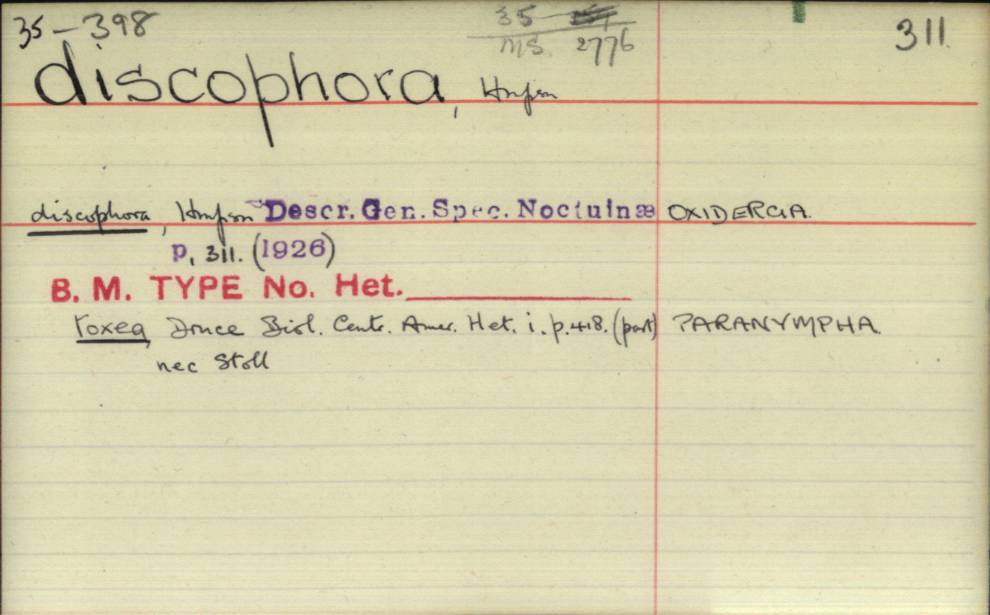 35-398 35- MS. 2776 311.
discophora, Hmpsn
discophora, Hmpsn Descr. Gen. Spec. Noctuinæ OXIDERCIA.
p. 311. (1926)
B. M. TYPE No. Het.
toxea, Druce Biol. Centr. Amer. Het. i. p. 418. (part) PARANYMPHA.
nec Stoll